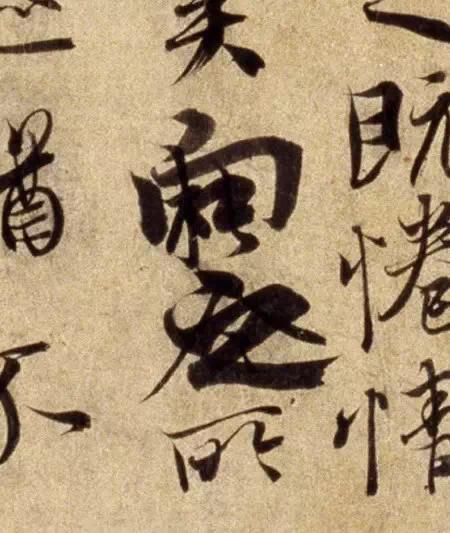 之既惓情
矣向之所
猶不